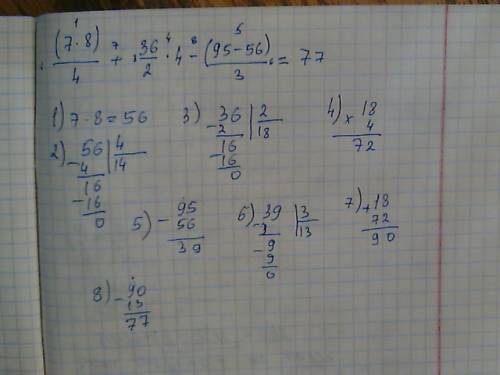 1 5
(7·8)/4 +⁷ 36/2 ·⁴ 4 -⁸ (95-56)/3 = 77
1) 7·8=56
2) 56 | 4
- 4 | 14
16
- 16
0
3) 36 | 2
- 2 | 18
16
- 16
0
4) 18
× 4
72
5) 95
- 56
39
6) 39 | 3
- 3 | 13
9
- 9
0
7) 18
+ 72
90
8) 90
- 13
77